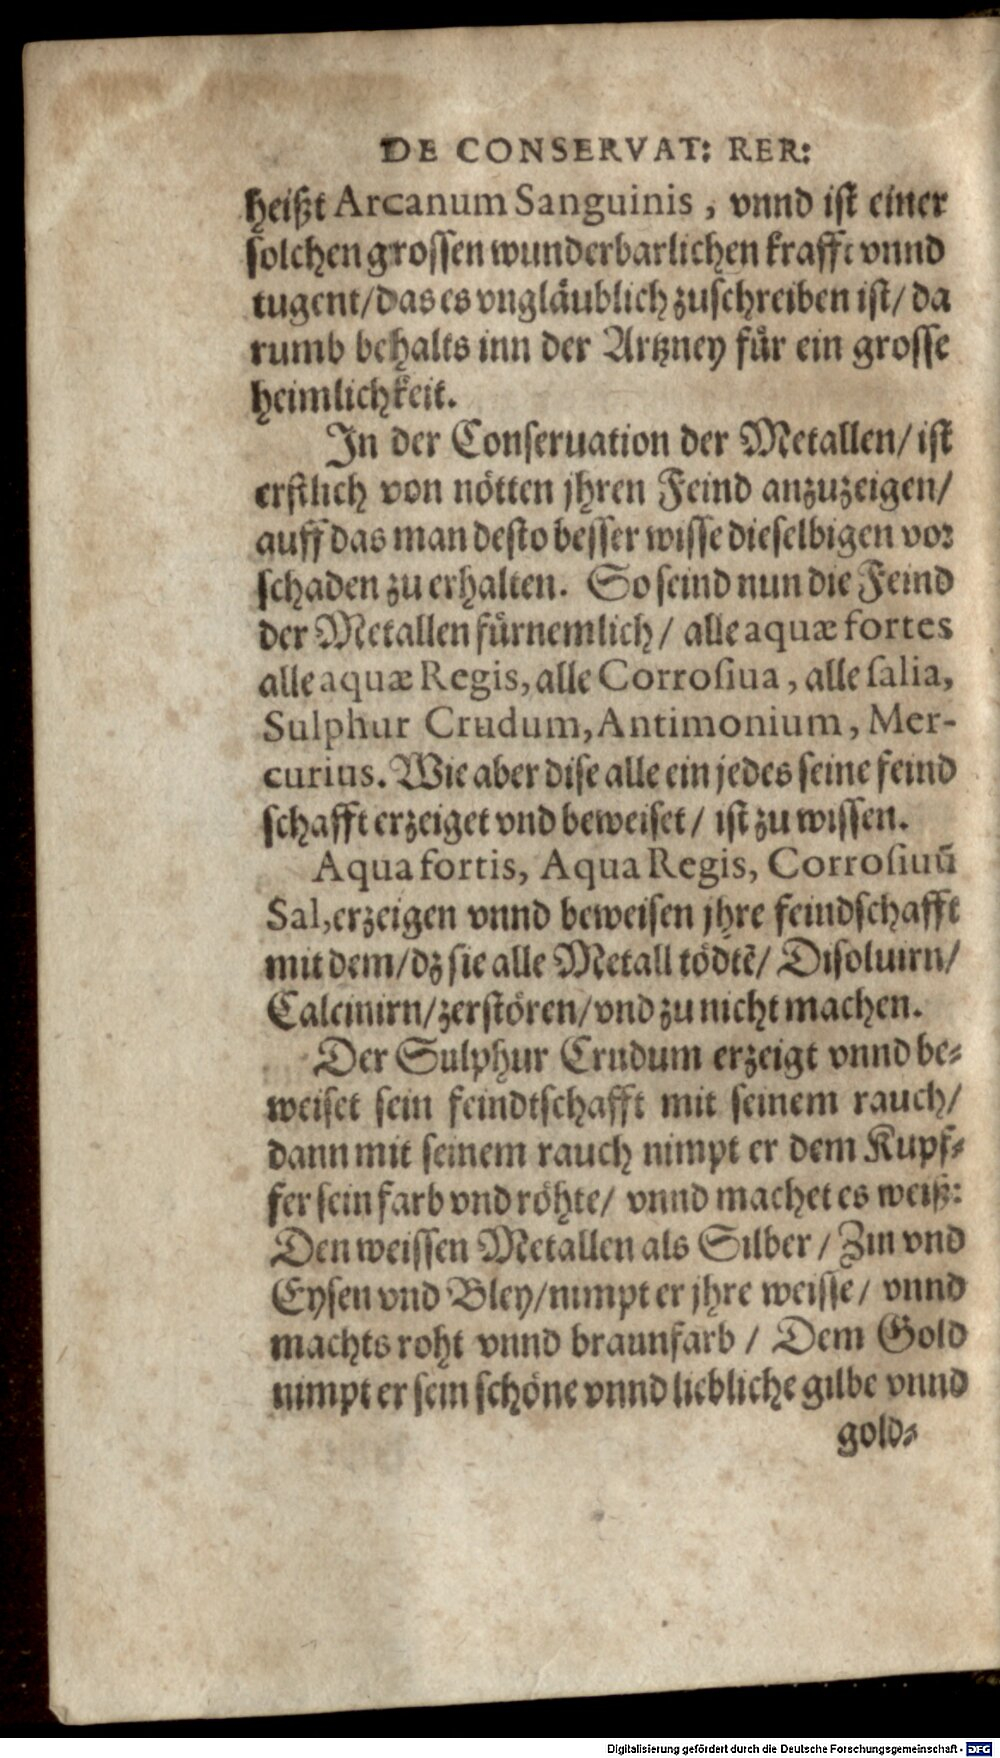 DE CONSERVAT: RER:
heißt Arcanum Sanguinis, vnnd ist einer
solchen grossen wunderbarlichen krafft vnnd
tugent/das es vngläublich zuschreiben ist/ da
rumb behalts inn der Artzney für ein grosse
heimlichkeit.
In der Conseruation der Metallen/ ist
erstlich von nötten jhren Feind anzuzeigen/
auff das man desto besser wisse dieselbigen vor
schaden zu erhalten. So seind nun die Feind
der Metallen fürnemlich/ alle aquæ fortes
alle aquæ Regis, alle Corrosiua, alle salia,
Sulphur Crudum, Antimonium, Mer-
curius. Wie aber dise alle ein jedes seine feind
schafft erzeiget vnd beweiset/ ist zu wissen.
Aqua fortis, Aqua Regis, Corrosiuũ
Sal, erzeigen vnnd beweisen jhre feindschafft
mit dem/dz sie alle Metall tödtē/ Disoluirn/
Calcinirn/zerstören/vnd zu nicht machen.
Der Sulphur Crudum erzeigt vnnd be-
weiset sein feindtschafft mit seinem rauch/
dann mit seinem rauch nimpt er dem Kupf-
fer sein farb vnd röhte/ vnnd machet es weiß:
Den weissen Metallen als Silber / Zin vnd
Eysen vnd Bley/nimpt er jhre weisse/ vnnd
machts roht vnnd braunfarb / Dem Gold
nimpt er sein schöne vnnd liebliche gilbe vnnd
gold-
Digitalisierung gefördert durch die Deutsche Forschungsgemeinschaft - DFG